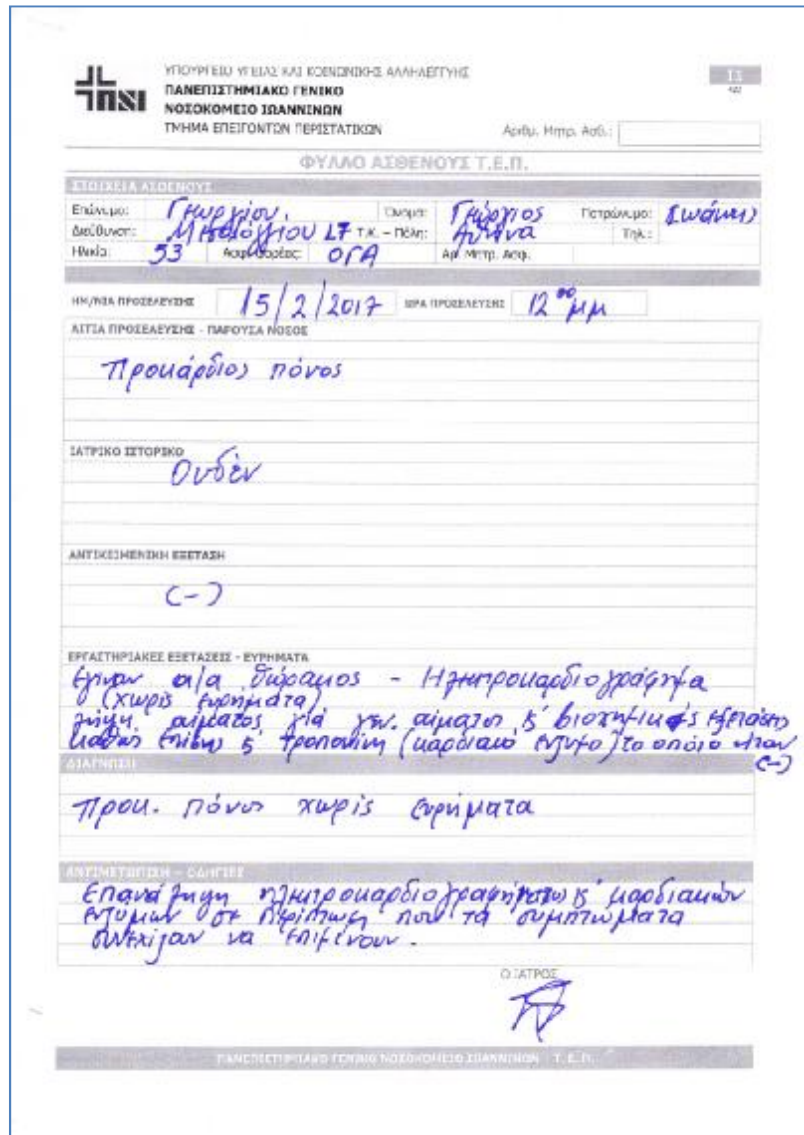 ΥΠΟΥΡΓΕΙΟ ΥΓΕΙΑΣ ΚΑΙ ΚΟΙΝΩΝΙΚΗΣ ΑΛΛΗΛΕΓΓΥΗΣ
ΠΑΝΕΠΙΣΤΗΜΙΑΚΟ ΓΕΝΙΚΟ
ΝΟΣΟΚΟΜΕΙΟ ΙΩΑΝΝΙΝΩΝ
ΤΜΗΜΑ ΕΠΕΙΓΟΝΤΩΝ ΠΕΡΙΣΤΑΤΙΚΩΝ Αριθμ. Μητρ. Ασθ.:
ΦΥΛΛΟ ΑΣΘΕΝΟΥΣ Τ.Ε.Π.
ΣΤΟΙΧΕΙΑ ΑΣΘΕΝΟΥΣ
Επώνυμο: Γεωργίου. Όνομα: Γεώργιος Πατρώνυμο: Ιωάννης
Διεύθυνση: 17 Τ.Κ. – Πόλη: Τηλ.:
Ηλικία: 53 Ασφ. Φορέας: ΟΓΑ Αρ. Μητρ. Ασφ.
ΗΜ/ΝΙΑ ΠΡΟΣΕΛΕΥΣΗΣ 15/2/2017 ΩΡΑ ΠΡΟΣΕΛΕΥΣΗΣ 12 00 μμ
ΑΙΤΙΑ ΠΡΟΣΕΛΕΥΣΗΣ - ΠΑΡΟΥΣΑ ΝΟΣΟΣ
Προκάρδιος πόνος
ΙΑΤΡΙΚΟ ΙΣΤΟΡΙΚΟ
Ουδέν
ΑΝΤΙΚΕΙΜΕΝΙΚΗ ΕΞΕΤΑΣΗ
(-)
ΕΡΓΑΣΤΗΡΙΑΚΕΣ ΕΞΕΤΑΣΕΙΣ - ΕΥΡΗΜΑΤΑ
Εγιναν α/α θώρακος - Ηλεκτροκαρδιογράφημα
(χωρίς ευρήματα)
λήψη αίματος για γεν. αίματος & βιοχημικές εξετάσεις
καθώς επίσης & τροπονίνη (καρδιακό ένζυμο) το οποίο ήταν
(-)
ΔΙΑΓΝΩΣΗ
Προκ. πόνος χωρίς ευρήματα
ΑΝΤΙΜΕΤΩΠΙΣΗ – ΟΔΗΓΙΕΣ
Επανάληψη ηλεκτροκαρδιογραφήματος & καρδιακών
ενζύμων σε περίπτωση που τα συμπτώματα
συνεχίσαν να επιμένουν.
Ο ΙΑΤΡΟΣ
ΠΑΝΕΠΙΣΤΗΜΙΑΚΟ ΓΕΝΙΚΟ ΝΟΣΟΚΟΜΕΙΟ ΙΩΑΝΝΙΝΩΝ Τ.Ε.Π.